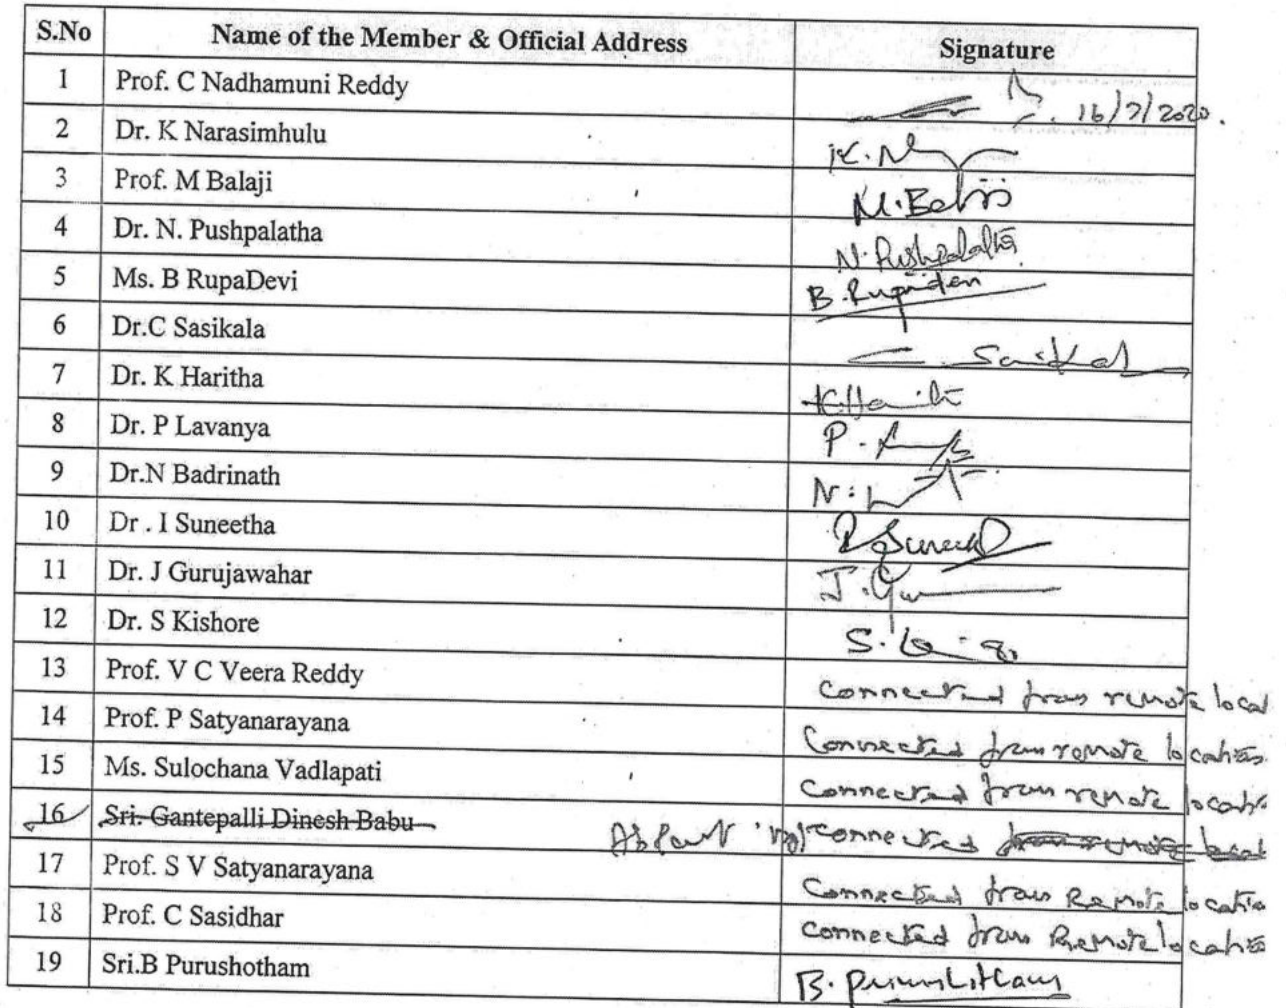 S.No Name of the Member & Official Address Signature
1 Prof. C Nadhamuni Reddy 16/7/2020.
2 Dr. K Narasimhulu K.N
3 Prof. M Balaji M.Balaji
4 Dr. N. Pushpalatha N.Pushpalatha
5 Ms. B RupaDevi B.Rupadevi
6 Dr.C Sasikala C. Sasikala
7 Dr. K Haritha K.Haritha
8 Dr. P Lavanya P.
9 Dr.N Badrinath N.
10 Dr . I Suneetha
11 Dr. J Gurujawahar J.Gu
12 Dr. S Kishore S.
13 Prof. V C Veera Reddy Connected from remote local
14 Prof. P Satyanarayana Connected from remote location
15 Ms. Sulochana Vadlapati Connected from remote location
16 Sri. Gantepalli Dinesh Babu Absent Not Connected from remote local
17 Prof. S V Satyanarayana Connected from Remote location
18 Prof. C Sasidhar Connected from Remote location
19 Sri.B Purushotham B. Purushotham